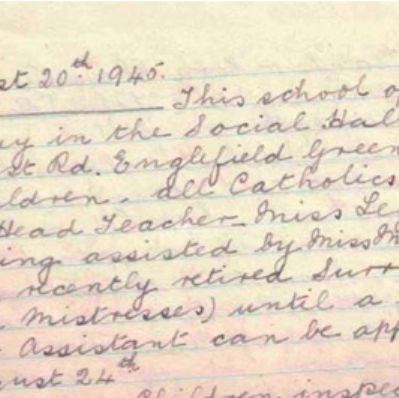 st 20th. 1945.
This school o
y in the Social Hall
St Rd. Englefield Green
ldren. all Catholics
Head Teacher - Miss Le
ing assisted by Miss M
recently retired Surr
Mistresses) until a
Assistant can be app
ust 24th
Children inspe